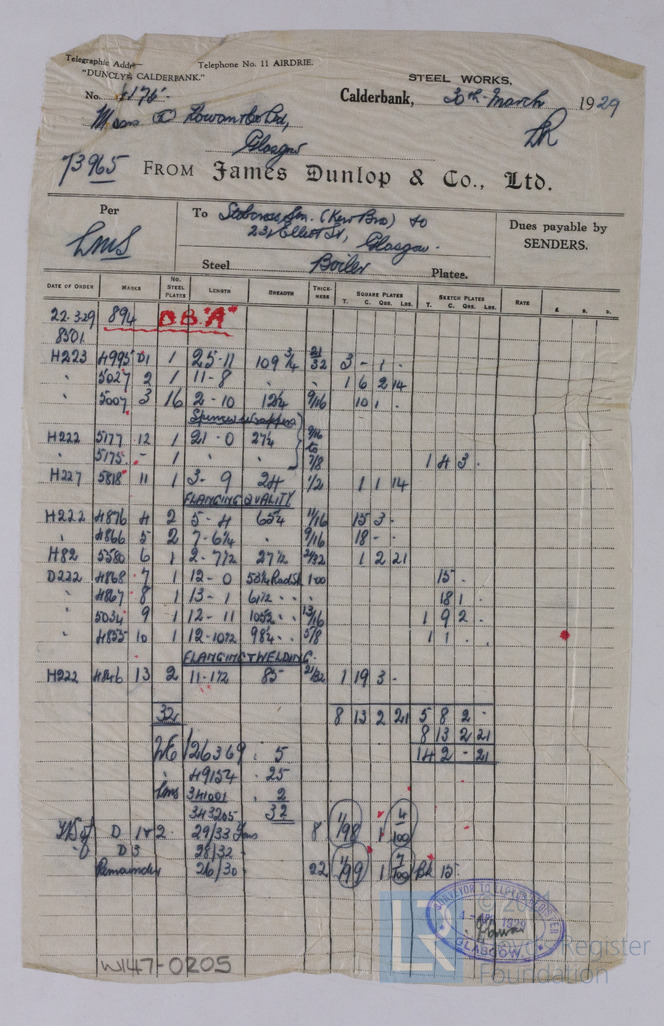 Telegraphic Addr— Telephone No. 11 AIRDRIE.
"DUNCLYS CALDERBANK."
STEEL WORKS,
No. 4176 Calderbank, 30th March 1929
Messrs D Rowan & Co Ltd, LR
Glasgow
73965 FROM James Dunlop & Co., Ltd.
Per LMS
To Stobcross Stn. (Kerr Bros) to
231 Elliot St, Glasgow.
Dues payable by SENDERS.
Steel Boiler Plates.
DATE OF ORDER MARKS NO. STEEL PLATES LENGTH BREADTH THICKNESS SQUARE PLATES T. C. Qrs. Lbs. SKETCH PLATES T. C. Qrs. Lbs. RATE £ s. D.
22.3.29 894 D.B. "A"
8501
H223 4995 D1 1 25-11 109 3/4 21/32 3 - 1 -
" 5027 2 1 11-8 " " 1 6 2 14
" 5007 3 16 2-10 12 1/4 9/16 10 1 -
H222 5177 12 1 21-0 27 1/4 9/16
" 5175 - 1 " " to 7/8 1 4 3 -
H227 5818 11 1 3-9 24 1/2 1 1 14
FLANGING QUALITY
H222 4876 4 2 5-4 65 1/4 11/16 15 3 -
" 4866 5 2 7-6 1/4 " 9/16 18 - -
H82 5580 6 1 2-7 1/2 27 1/2 1 2 21
D222 4868 7 1 12-0 1·00 15 -
" 4867 8 1 13-1 " 18 1 -
" 5034 9 1 12-11 13/16 1 9 2 -
" 4855 10 1 12-10 1/2 98 1/4 " " 5/8 1 1 -
FLANGING & WELDING
H222 4846 13 2 11-1 1/2 85 21/32 1 19 3 -
32 8 13 2 21 5 8 2 -
8 13 2 21
14 2 - 21
NE 126369 . 5
" 49154 . 25
LMS 341001 . 2
343205 32
D 1 & 2 29/33 Tons 8 1/98 1 4/100
D3 28/32
Remainder 26/30 22 1/99 1 7/100 BK 15
SURVEYOR TO LLOYD'S REGISTER
4 - APR 1929
GLASGOW
© 20
Lloyd's Register
Foundation
W147-0205